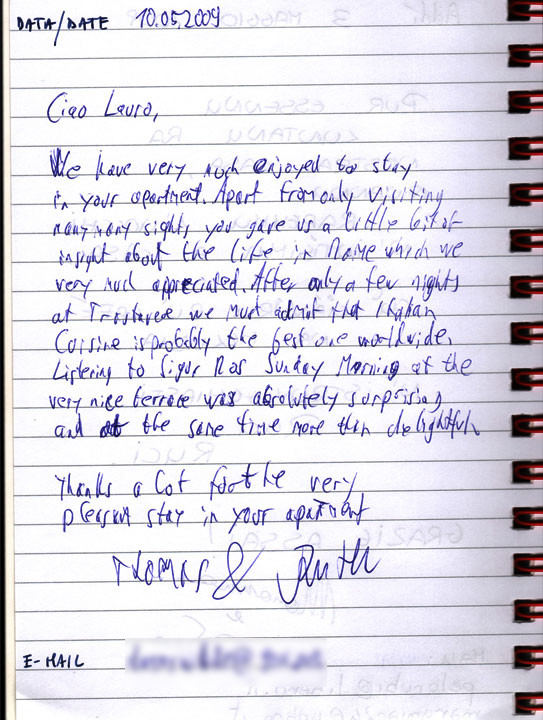 DATA/DATE 10.05.2009
Ciao Laura,
We have very much enjoyed to stay
in your apartment. Apart from only visiting
many many sights you gave us a little bit of
insight about the life in Rome which we
very much appreciated. After only a few nights
at Trastevere we must admit that Italian
Cuisine is probably the best one worldwide.
Listening to Sigur Ros Sunday Morning at the
very nice terrace was absolutely surprising
and at the same time more than delightful.
Thanks a lot for the very
pleasant stay in your apartment
Thomas & Judith
E-MAIL